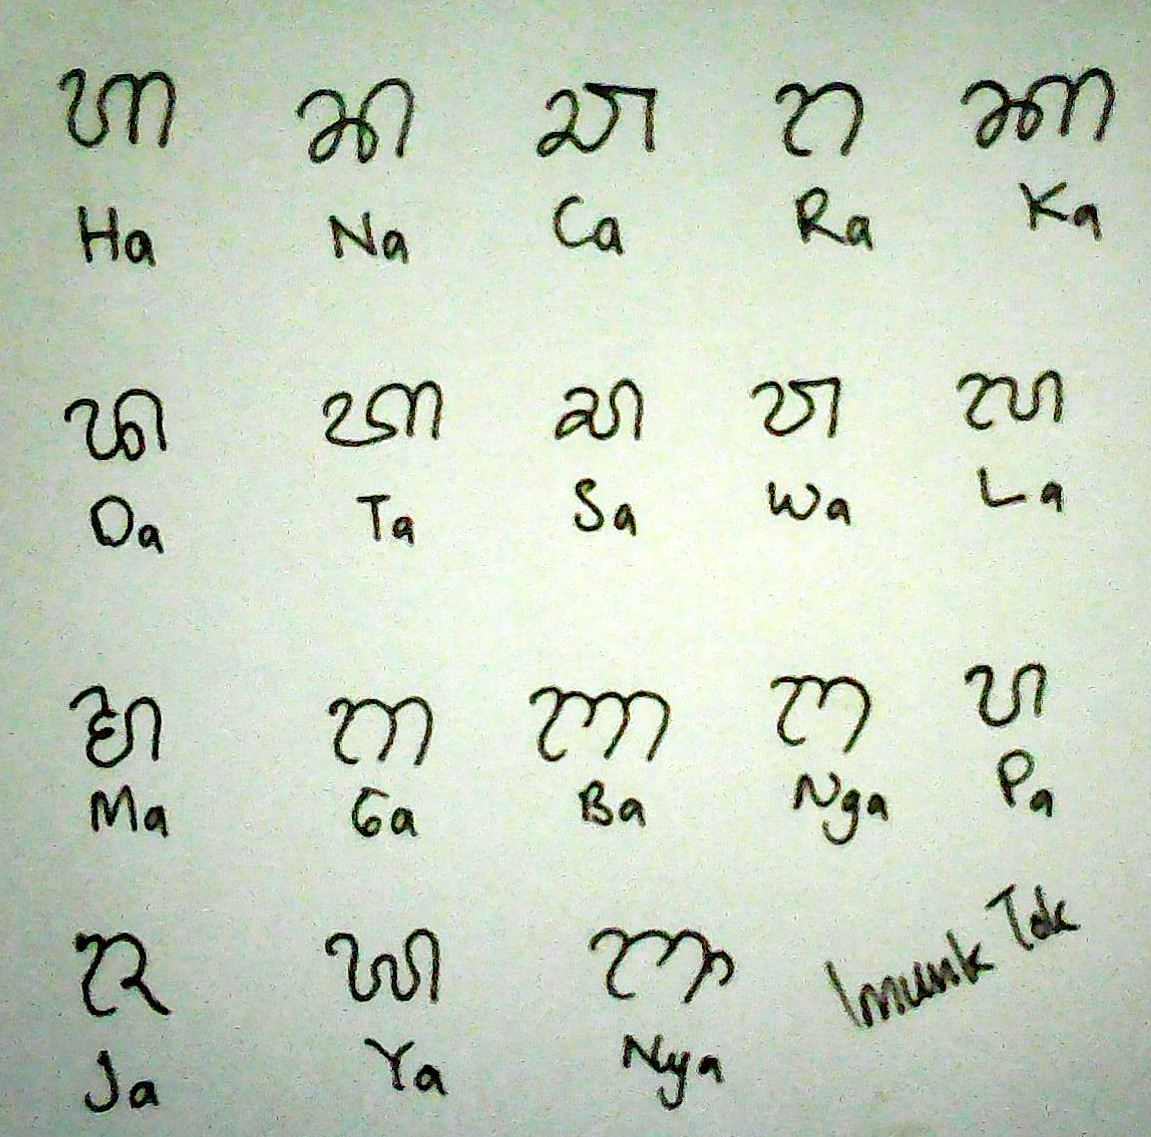 ᬳ ᬦ ᬘ ᬭ ᬓ
Ha Na Ca Ra Ka
ᬤ ᬢ ᬲ ᬯ ᬮ
Da Ta Sa Wa La
ᬫ ᬕ ᬩ ᬗ ᬧ
Ma Ga Ba Nga Pa
ᬚ ᬬ ᬜ
Ja Ya Nya